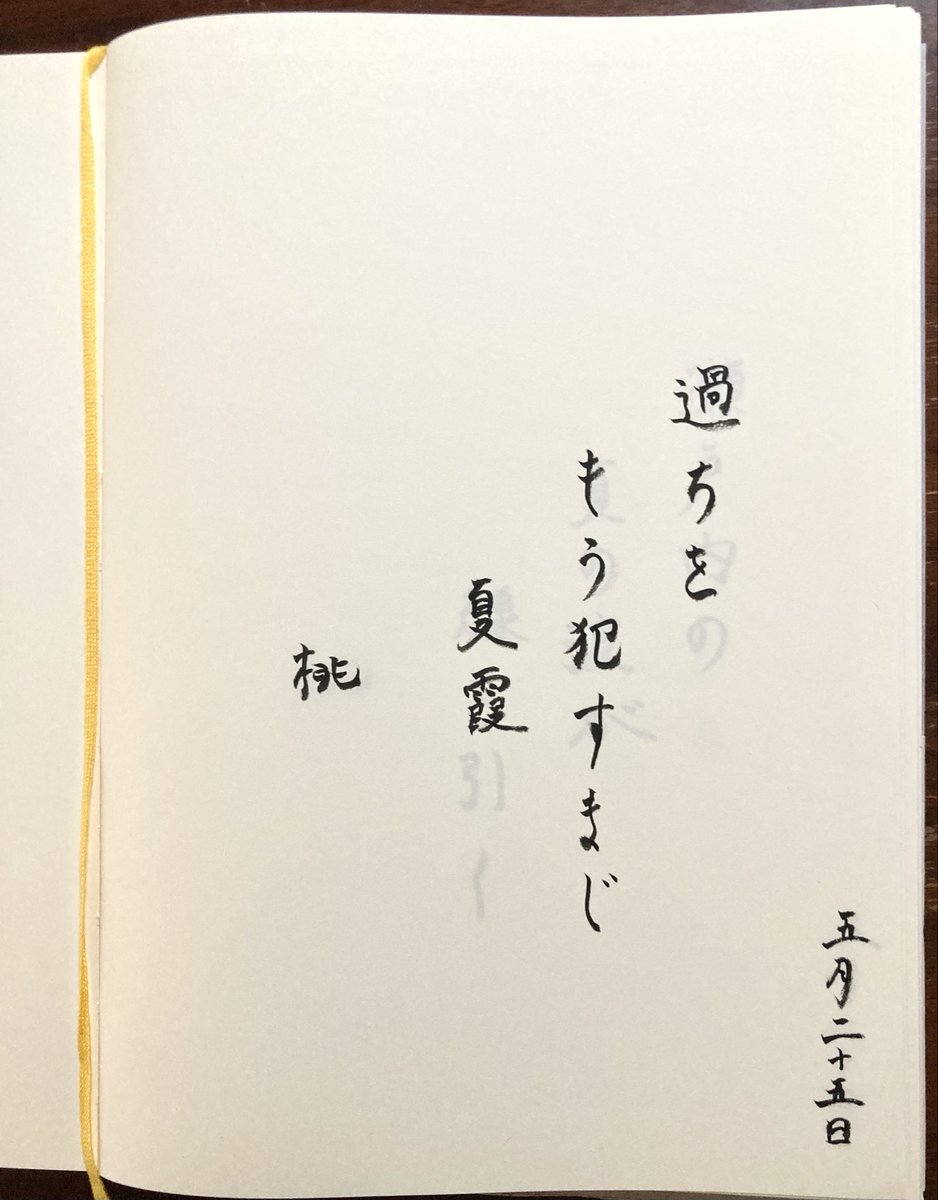 五月二十五日
過ちを
もう犯すまじ
夏霞
桃